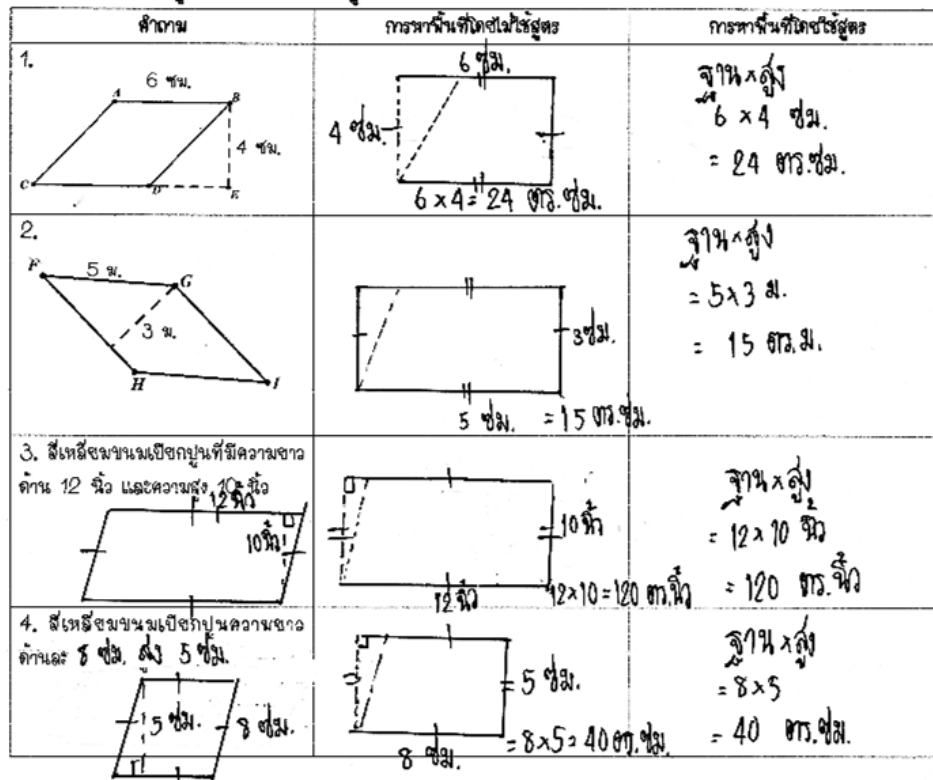 คำถาม
การหาพื้นที่โดยไม่ใช้สูตร
การหาพื้นที่โดยใช้สูตร
1.
6 ซม.
A
B
4 ซม.
C
D
E
6 ซม.
4 ซม.
6 × 4 = 24 ตร.ซม.
ฐาน × สูง
6 × 4 ซม.
= 24 ตร.ซม.
2.
F
5 ม.
G
3 ม.
H
I
3 ซม.
5 ซม. = 15 ตร.ซม.
ฐาน × สูง
= 5 × 3 ม.
= 15 ตร.ม.
3. สี่เหลี่ยมขนมเปียกปูนที่มีความยาว
ด้าน 12 นิ้ว และความสูง 10 นิ้ว
12 นิ้ว
10 นิ้ว
10 นิ้ว
12 นิ้ว
12 × 10 = 120 ตร.นิ้ว
ฐาน × สูง
= 12 × 10 นิ้ว
= 120 ตร.นิ้ว
4. สี่เหลี่ยมขนมเปียกปูนความยาว
ด้านละ 8 ซม. สูง 5 ซม.
5 ซม.
8 ซม.
5 ซม.
8 ซม.
= 8 × 5 = 40 ตร.ซม.
ฐาน × สูง
= 8 × 5
= 40 ตร.ซม.